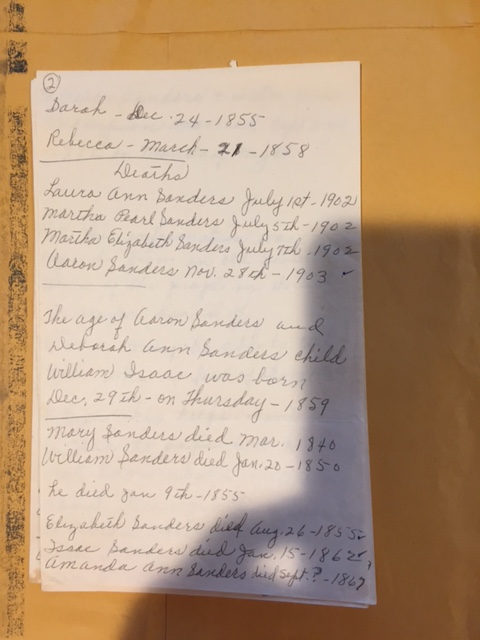 2
Sarah - Dec. 24 - 1855
Rebecca - March - 21 - 1858
Deaths
Laura Ann Sanders July 1st - 1902
Martha Pearl Sanders July 5th - 1902
Martha Elizabeth Sanders July 7th - 1902
Aaron Sanders Nov. 28th - 1903
The age of Aaron Sanders and
Deborah Ann Sanders child
William Isaac was born
Dec. 29th - on Thursday - 1859
Mary Sanders died Mar. 1840
William Sanders died Jan. 20 - 1850
he died Jan 9th - 1855
Elizabeth Sanders died Aug. 26 - 1855
Issac Sanders died Jan. 15 - 1862
Amanda Ann Sanders died Sept. ? - 1867